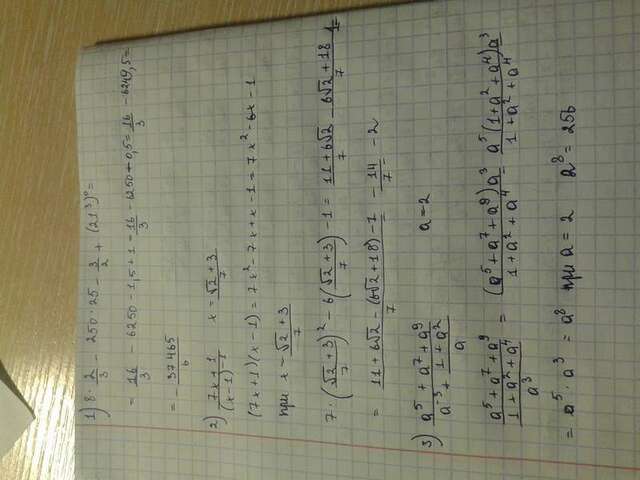 1) 8 · 2/3 - 250 · 25 - 3/2 + (21³)⁰ =
= 16/3 - 6250 - 1,5 + 1 = 16/3 - 6250 - 0,5 = 16/3 - 6249,5 =
= - 37465/6
2) (7x + 1)/(x-1)⁻¹ x = (√2 + 3)/7
(7x+1)(x-1) = 7x² - 7x + x - 1 = 7x² - 6x - 1
при x = (√2 + 3)/7
7 · ((√2 + 3)/7)² - 6((√2 + 3)/7) - 1 = (11 + 6√2)/7 - (6√2 + 18)/7 - 1 =
= (11 + 6√2 - (6√2 + 18) - 7)/7 = -14/7 = -2
3) (a⁵ + a⁷ + a⁹)/(a⁻³ + (1 + a²)/a) a = 2
(a⁵ + a⁷ + a⁹)/((1 + a² + a⁴)/a³) = ((a⁵ + a⁷ + a⁹)a³)/(1 + a² + a⁴) = (a⁵(1 + a² + a⁴)a³)/(1 + a² + a⁴) =
= a⁵ · a³ = a⁸ при a = 2 2⁸ = 256